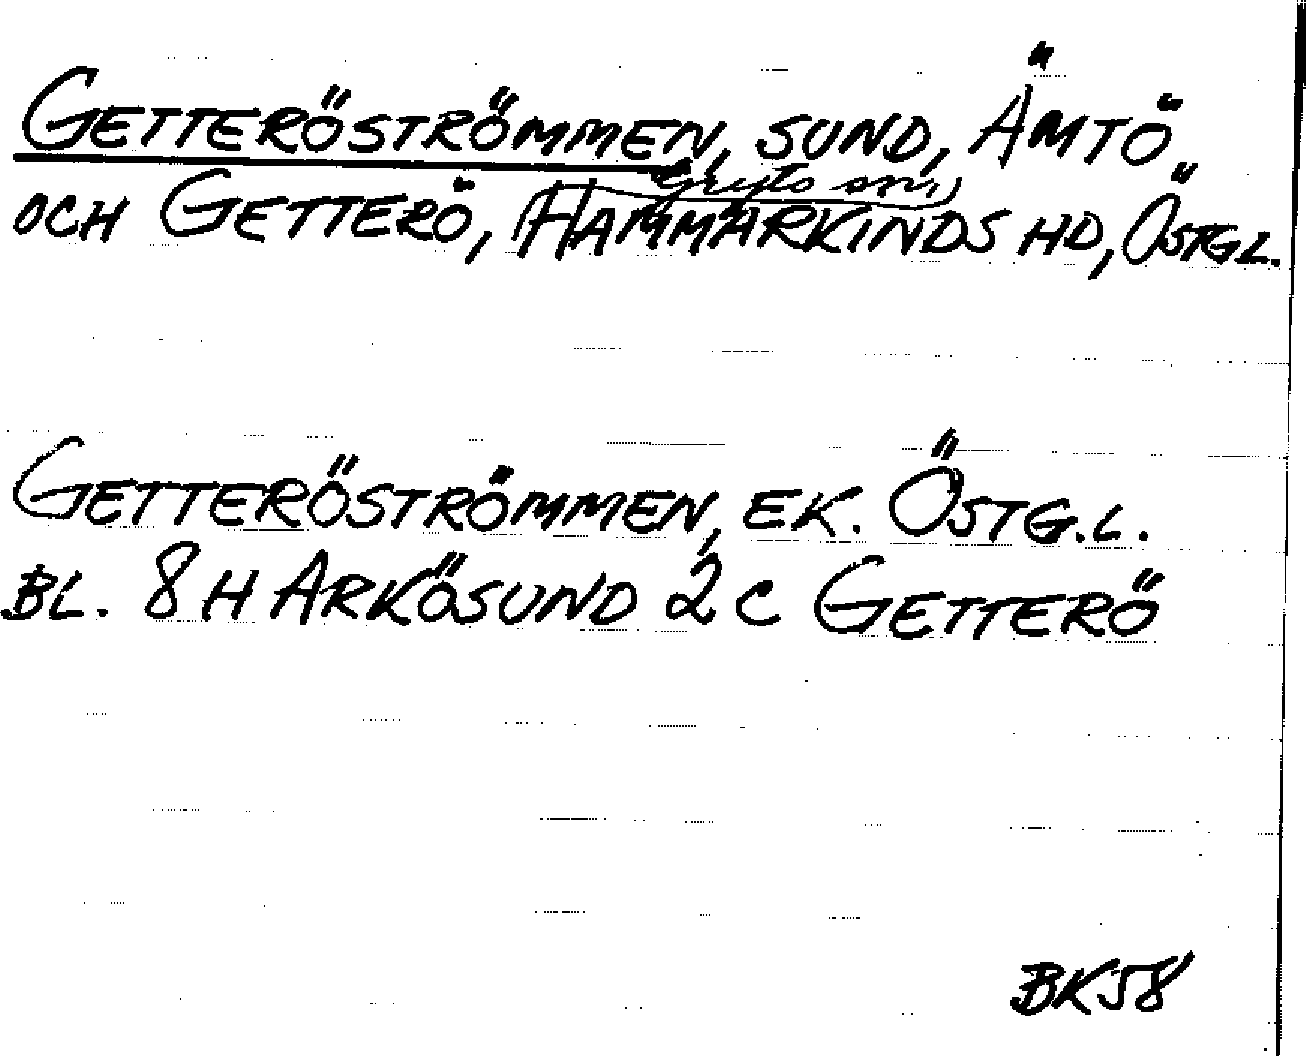 GETTERÖSTRÖMMEN, SUND, ÄMTÖ
Gryts sn,
OCH GETTERÖ, (HAMMARKINDS HD, ÖSTGL.
GETTERÖSTRÖMMEN, EK. ÖSTG.L.
BL. 8H ARKÖSUND 2C GETTERÖ
BK58